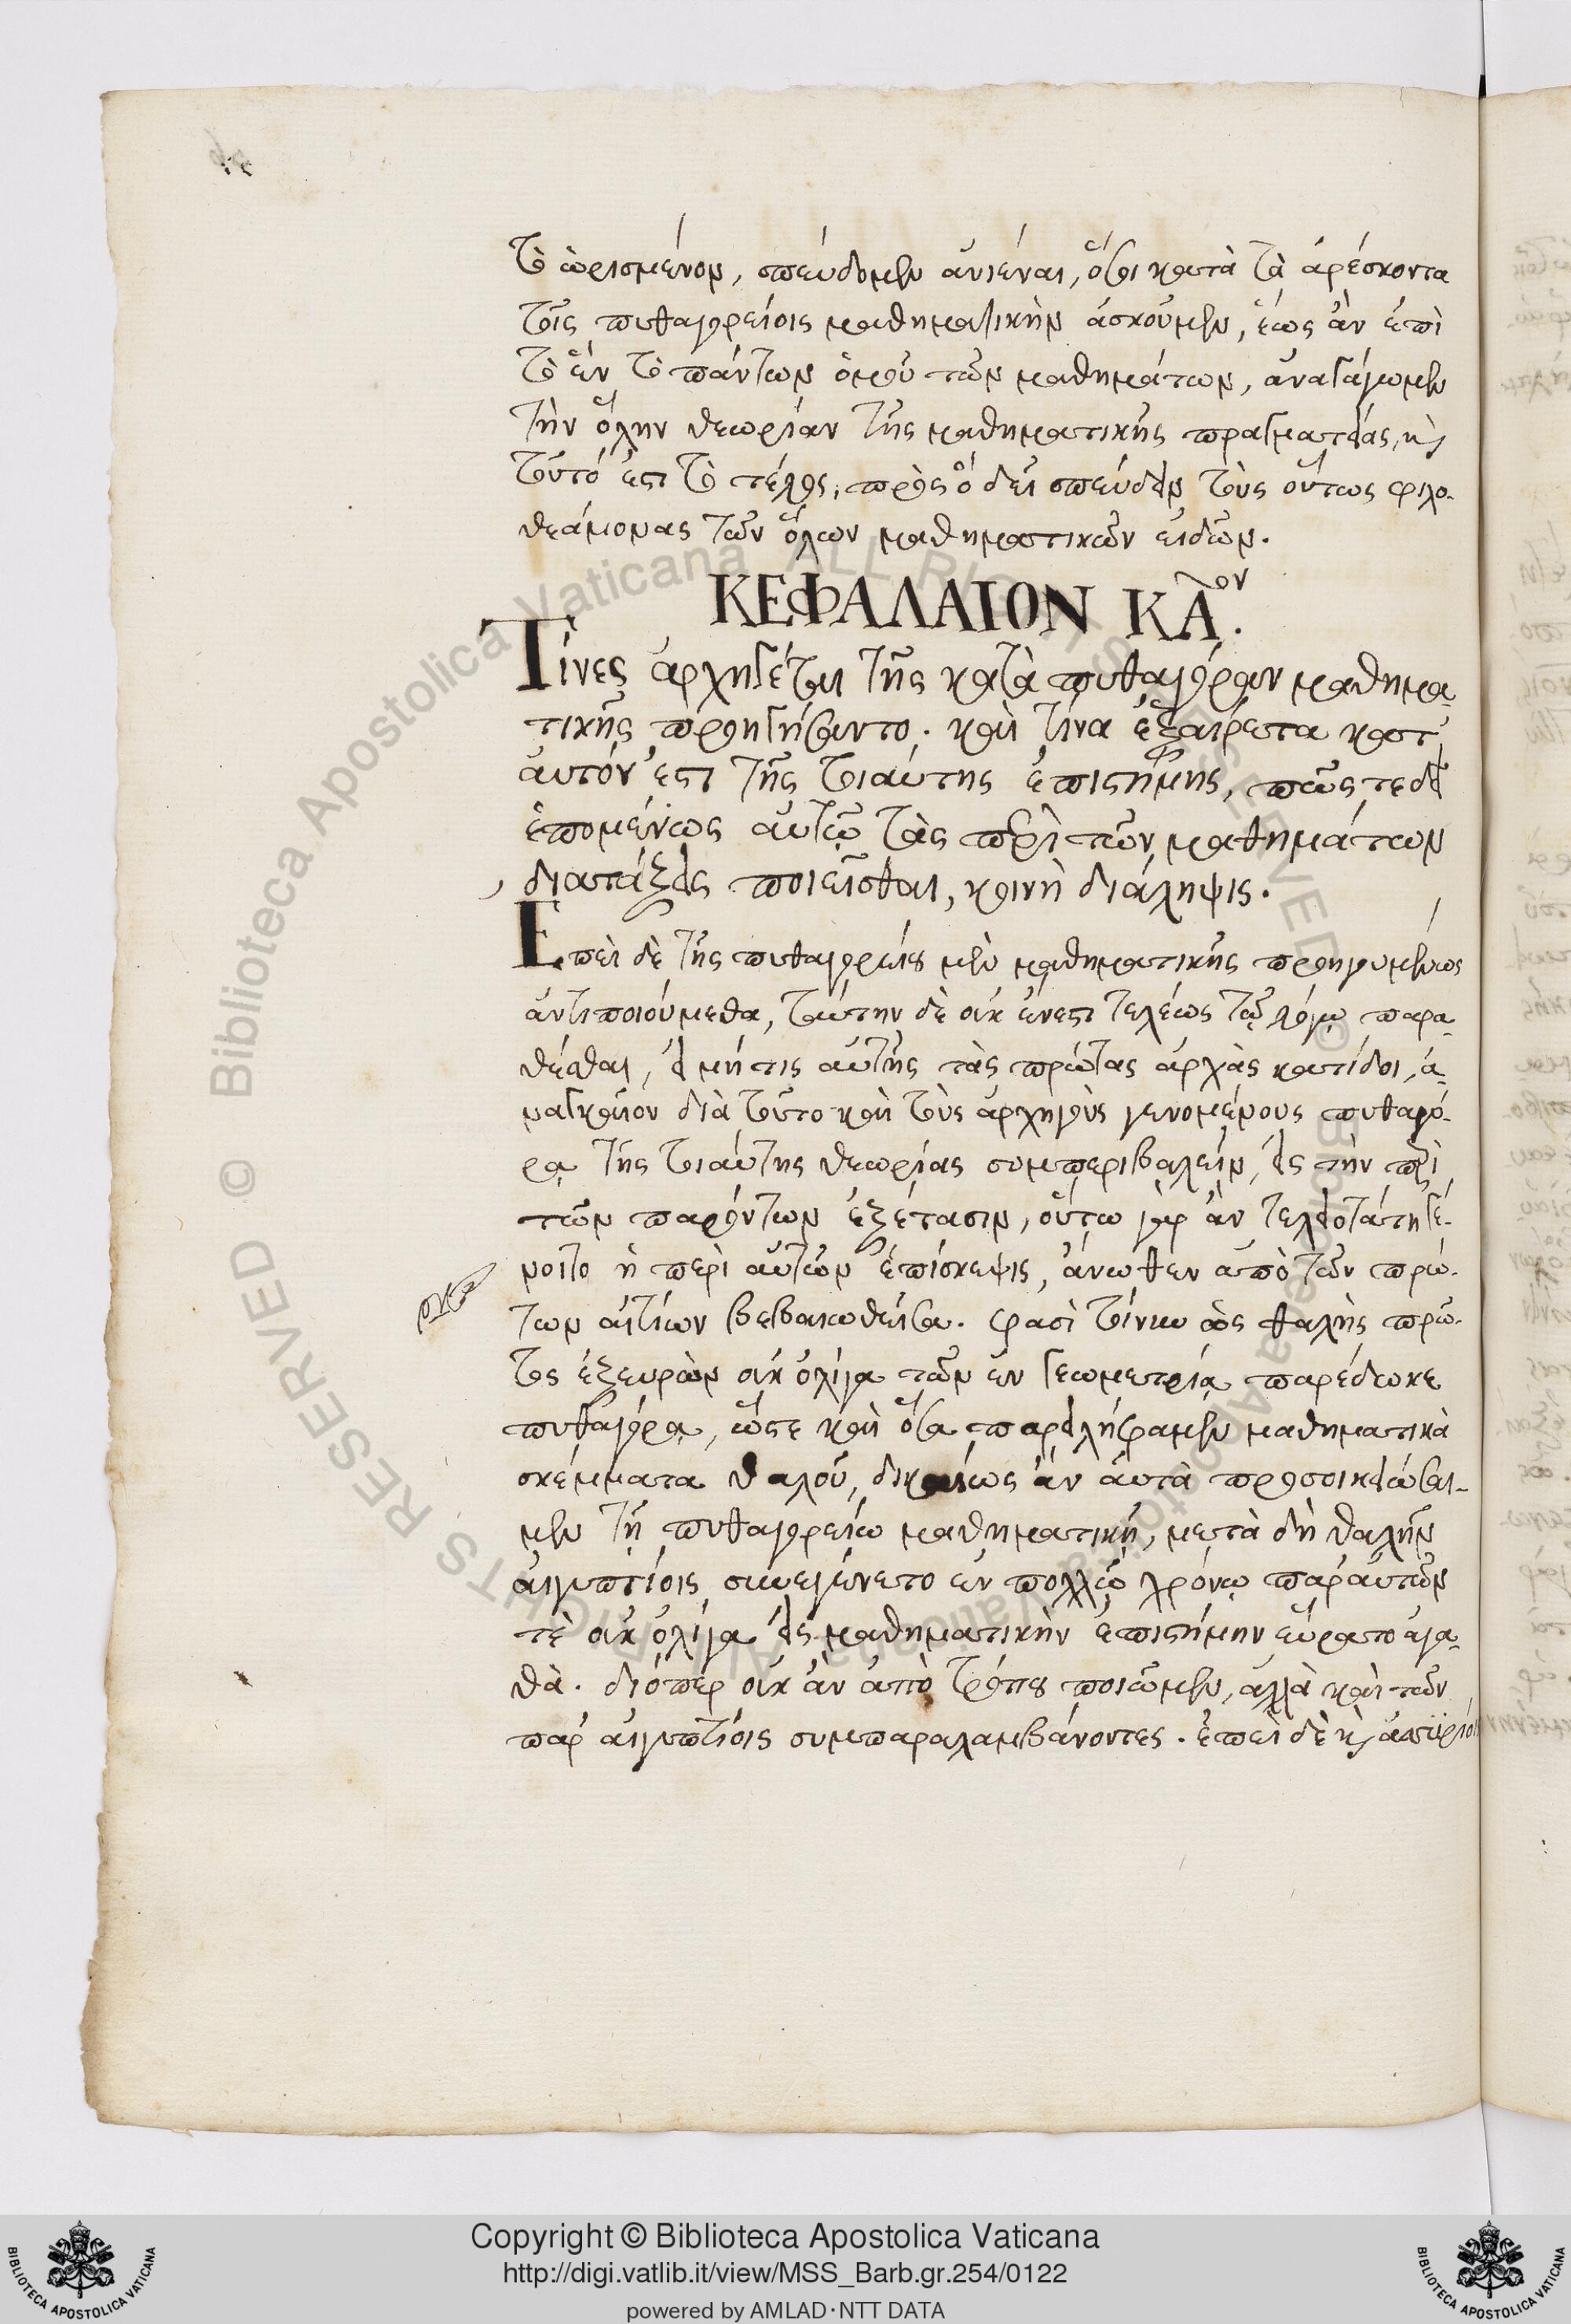 τὸ ὡρισμένον, σπεύδομεν ἀνιέναι, ὅσοι κατὰ τὰ ἀρέσκοντα
τοῖς πυθαγορείοις μαθηματικὴν ἀσκοῦμεν, ἕως ἂν ἐπὶ
τὸ ἓν τὸ πάντων ὁμοῦ τῶν μαθημάτων, ἀναγάγωμεν
τὴν ὅλην θεωρίαν τῆς μαθηματικῆς πραγματείας, κỳ
τοῦτό ἐστι τὸ τέλος, πρὸς ὃ δεῖ σπεύδειν τοὺς ὄντως φιλο-
θεάμονας τῶν ὅλων μαθηματικῶν εἰδῶν.
ΚΕΦΑΛΑΙΟΝ ΚΑ̃ον.
Τίνες ἀρχηγέται τῆς κατὰ πυθαγόραν μαθημα-
τικῆς προηγήσαντο. καὶ τίνα ἐξαίρετα κατ'
αὐτόν ἐστι τῆς τοιαύτης ἐπιστήμης, πῶς τε δεῖ
ἑπομένως αὐτῷ τὰς περὶ τῶν μαθημάτων
διατάξεις ποιεῖσθαι, κοινὴ διάληψις.
Ἐπεὶ δὲ τῆς πυθαγορείου μὲν μαθηματικῆς προηγουμένως
ἀντιποιούμεθα, ταύτην δὲ οὐκ ἔνεστι τελέως τῷ λόγῳ παρα-
θέσθαι, εἰ μή τις αὐτῆς τὰς πρώτας ἀρχὰς κατίδοι, ἀ-
ναγκαῖον διὰ τοῦτο καὶ τοὺς ἀρχηγοὺς γενομένους πυθαγό-
ρᾳ τῆς τοιαύτης θεωρίας συμπεριβαλεῖν, εἰς τὴν περὶ
τῶν παρόντων ἐξέτασιν, οὕτω γὰρ ἂν τελειοτάτη γέ-
νοιτο ἡ περὶ αὐτῶν ἐπίσκεψις, ἄνωθεν ἀπὸ τῶν πρώ-
των αἰτίων βεβαιωθεῖσα. φασὶ τοίνυν ὡς θαλὴς πρῶ-
τος ἐξευρὼν οὐκ ὀλίγα τῶν ἐν γεωμετρίᾳ παρέδωκε
πυθαγόρᾳ, ὥστε καὶ ὅσα παρειλήφαμεν μαθηματικὰ
σκέμματα θαλοῦ, δικαίως ἂν αὐτὰ προσοικειώσαι-
μεν τῇ πυθαγορείῳ μαθηματικῇ, μετὰ δὴ θαλῆν
αἰγυπτίοις συνεγένετο ἐν πολλῷ χρόνῳ παρ' αὐτῶν
τὲ οὐκ ὀλίγα εἰς μαθηματικὴν ἐπιστήμην εὕρατο ἀγα-
θὰ. διόπερ οὐκ ἂν ἀπὸ τρόπου ποιῶμεν, ἀλλὰ καὶ τῶν
παρ' αἰγυπτίοις συμπαραλαμβάνοντες. ἐπεὶ δὲ κỳ ἀσσυρίοι
Copyright © Biblioteca Apostolica Vaticana
http://digi.vatlib.it/view/MSS_Barb.gr.254/0122
powered by AMLAD·NTT DATA